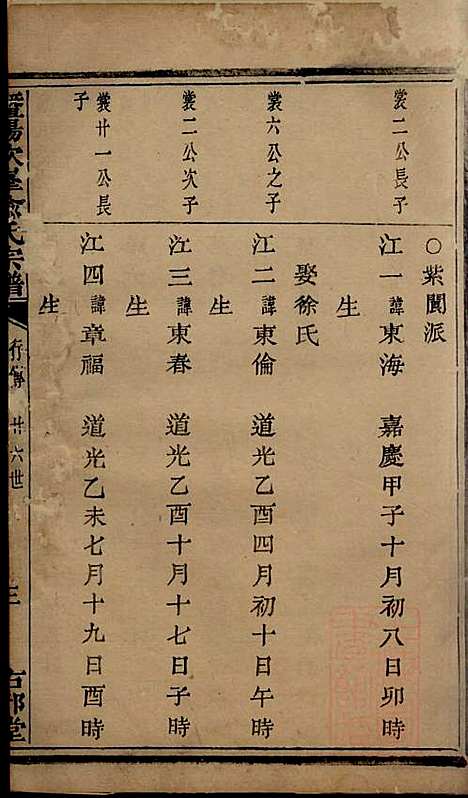 ○紫閬派
裳二公長子
江一諱東海 嘉慶甲子十月初八日卯時
生
娶徐氏
裳六公之子
江二諱東倫 道光乙酉四月初十日午時
生
裳二公次子
江三諱東春 道光乙酉十月十七日子時
生
裳廿一公長
子
江四諱章福 道光乙未七月十九日酉時
生
氏宗譜
行傳 廿六世
三
堂